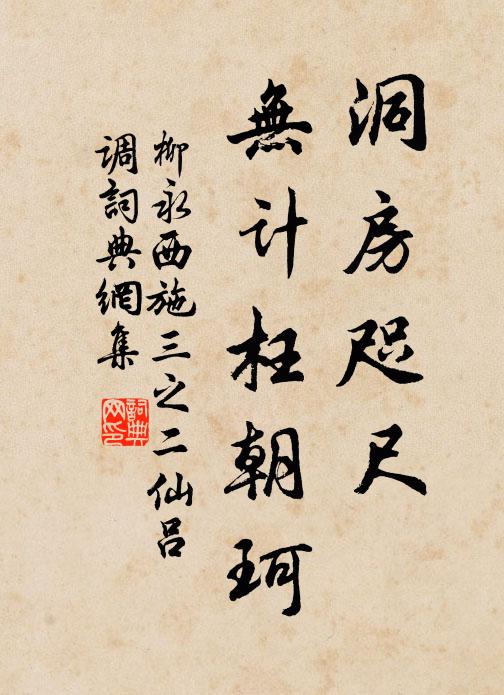 洞房咫尺
無计枉朝珂
柳永西施三之二仙吕
调詞典網集
詞典网印